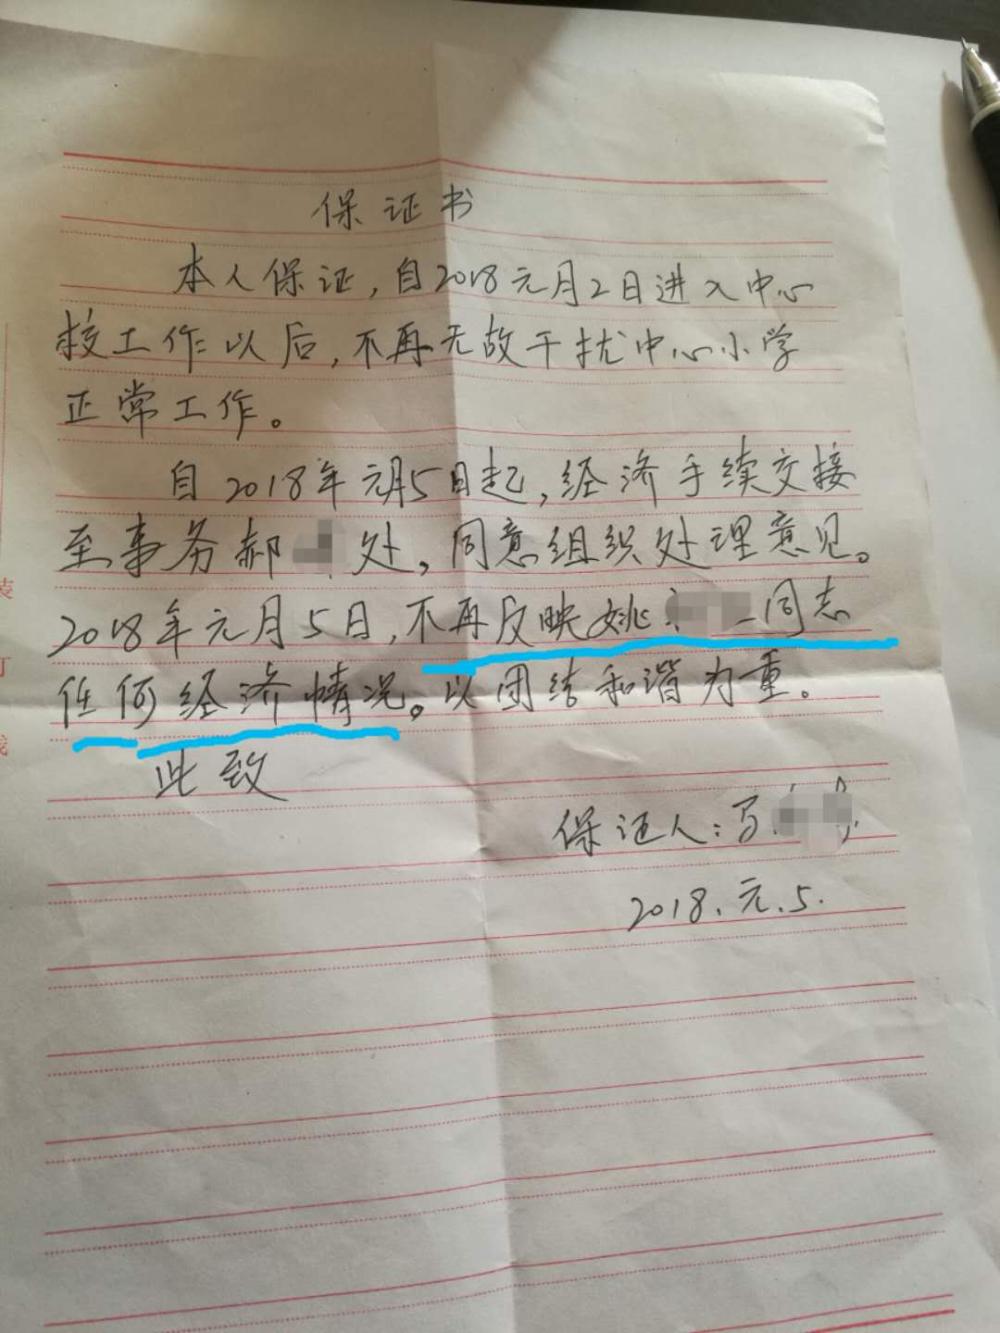 保证书
本人保证,自2018元月2日进入中心
校工作以后,不再无故干扰中心小学
正常工作。
自2018年元月5日起,经济手续交接
至事务郝 处,同意组织处理意见。
2018年元月5日,不再反映姚 同志
任何经济情况。以团结和谐为重。
此致
保证人:
2018.元.5.
装
订
线